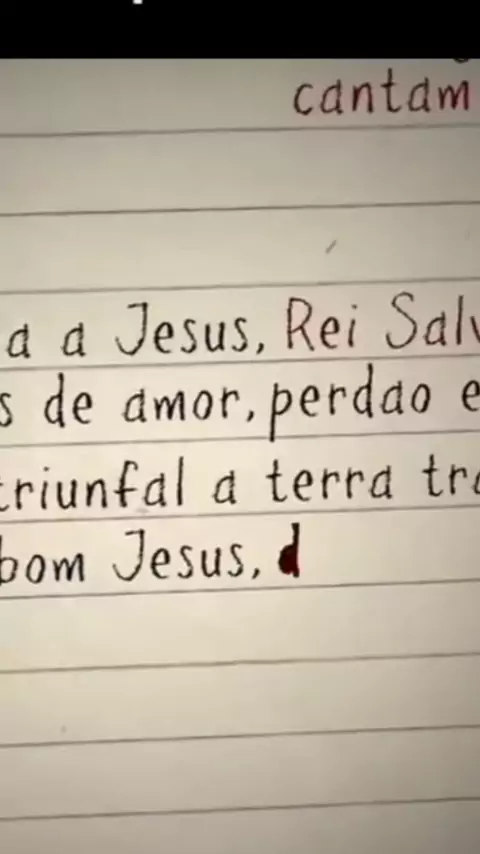 cantam
a a Jesus, Rei Salv
s de amor, perdao e
triunfal a terra tra
bom Jesus, d